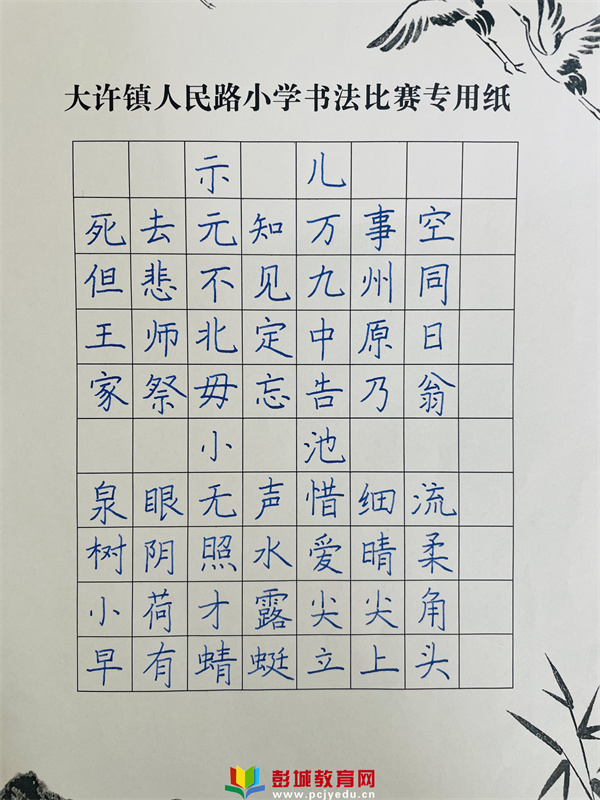 大许镇人民路小学书法比赛专用纸
示儿
死去元知万事空
但悲不见九州同
王师北定中原日
家祭毋忘告乃翁
小池
泉眼无声惜细流
树阴照水爱晴柔
小荷才露尖尖角
早有蜻蜓立上头
彭城教育网
www.pcjyedu.cn